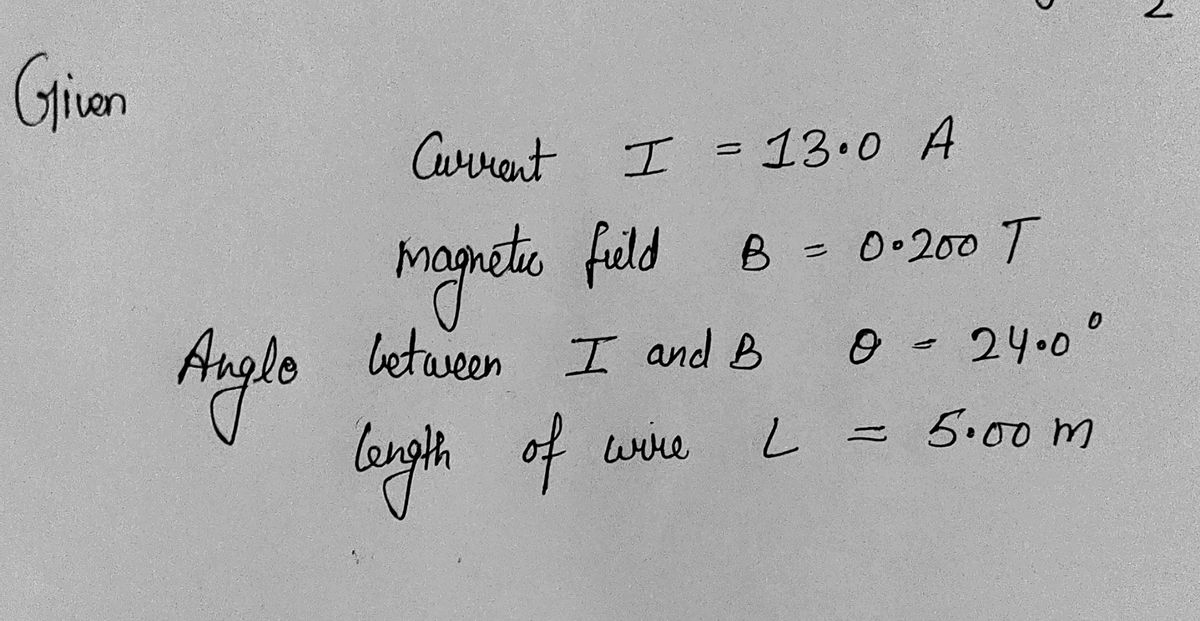 Given
Current I = 13.0 A
magnetic field B = 0.200 T
Angle between I and B θ = 24.0°
length of wire L = 5.00 m